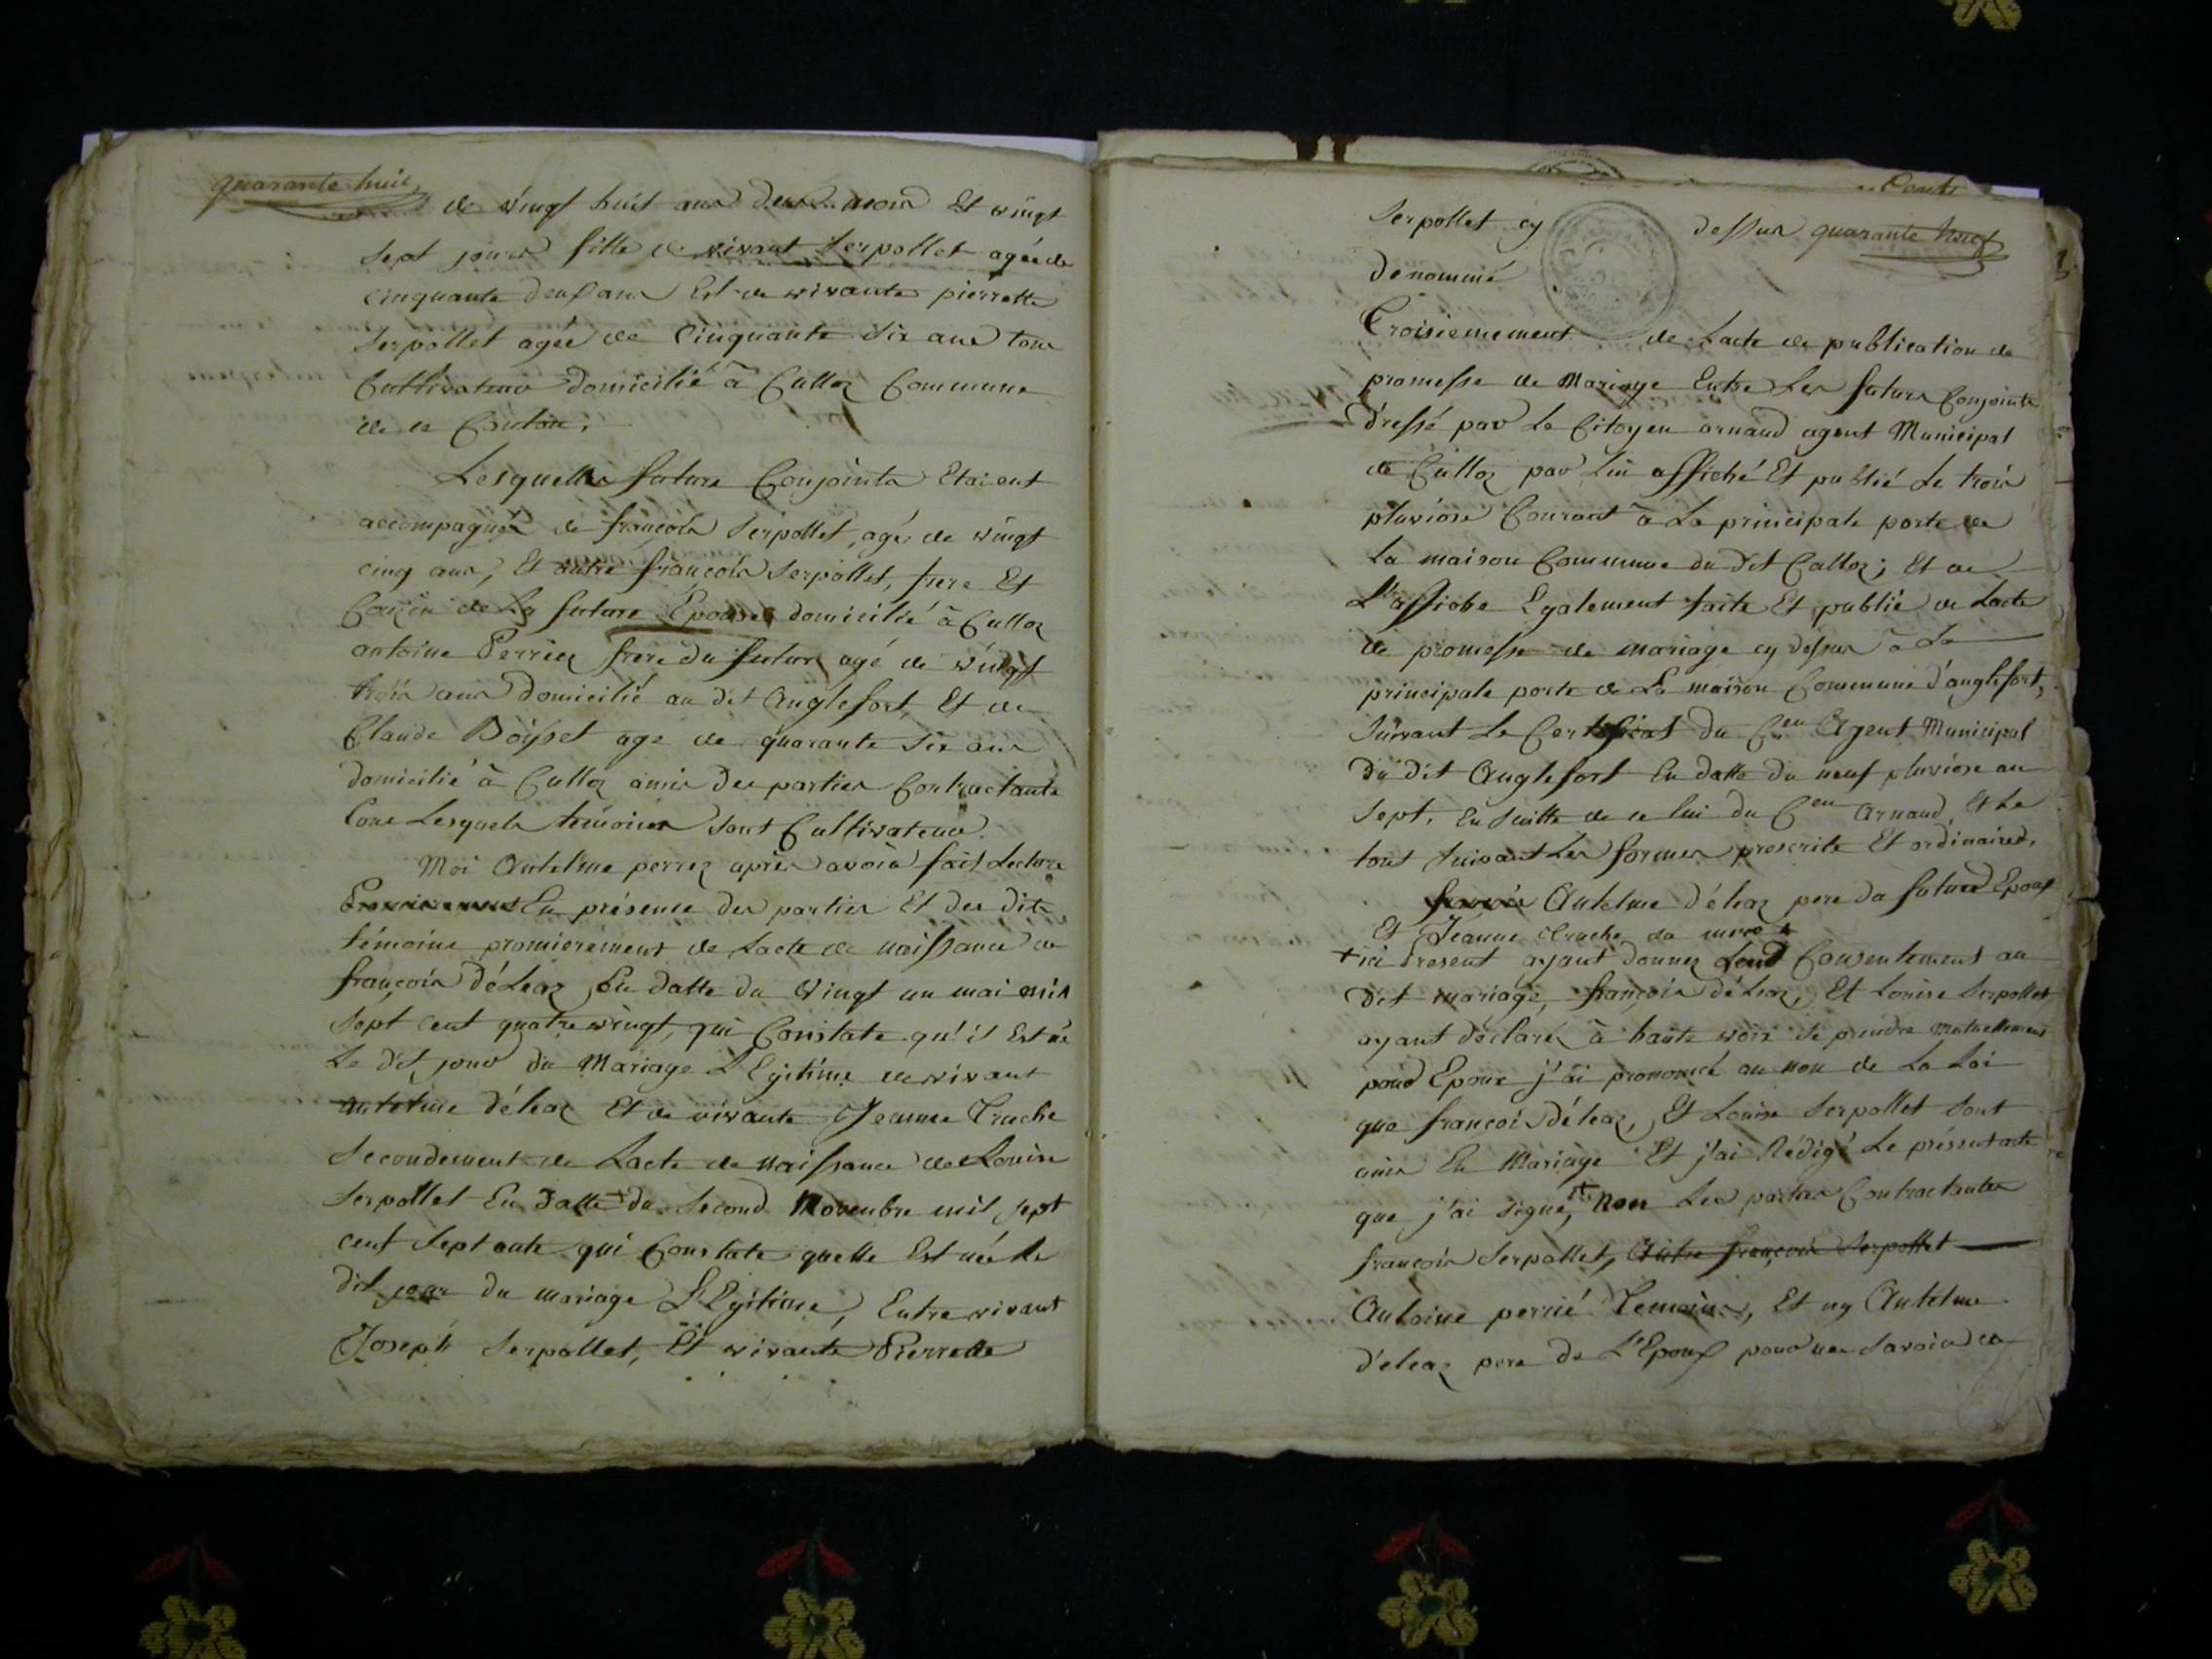 quarante huit
de vingt huit ans deux mois Et vingt
sept jours fille de vivant Serpollet agée de
cinquante deux ans Est de vivante pierrette
Serpollet agée de Cinquante six ans tous
Cultivateurs Domicilié à Culloz Commune
de ce Canton.
Lesquelles futurs Conjoints Etaient
accompagnés de françois Serpollet, agé de vingt
cinq ans, Et autre françois Serpollet, frere Et
Couzin de La future Epouse domicilié à Culloz
antoine Perrier frere du futur agé de vingt
trois ans Domicilié au dit Anglefort Et de
Claude Boisset age de quarante six ans
domicilié à Culloz amis des parties Contractante
Tous Lesquels témoins sont Cultivateurs.
Moi Antelme perrez après avoir fait Lecture
En présence des parties Et des dits
témoins promierement de Lacte de naissance de
françois déLeaz En datte du Vingt un mai mis
sept cent quatre vingt, qui Constate qu'il Est né
Le dit jour du Mariage LEgitime de vivant
antelme déleaz Et de vivante Jeanne Truche
Secondement de Lacte de naissance de Louise
Serpollet En Datte du Second Novenbre mil sept
cent septante qui Constate quelle Est née le
dit jour du mariage LEgitime, Entre vivant
Joseph Serpollet, Et vivante Pierrette
Serpollet cy dessus quarante neuf
Dénommé
Troisiemement de Lacte de publication de
promesse de Mariage Entre Les futurs Conjoints
Dressé par Le Citoyen arnaud agent Municipal
de Culloz par Lui affiché Et publié Le trois
pluviose Courant à La principale porte de
La maison Commune du dit Culloz; Et de
L'affiche Egalement faite Et publié de Lacte
de promesse de mariage cy dessus à La
principale porte de La maison Commune d'anglefort,
suivant Le Certificat du Cen Agent Municipal
du dit Anglefort En datte du neuf pluviose an
sept, En suitte de celui du Cen Arnaud, Et Le
tout suivant Les formes prescrite Et ordinaires.
Antelme déleaz pere du futur Epoux
Et Jeanne Truche sa mere +
+ ici Present ayant donnez Leur Consentement au
dit mariage, françois déleaz, Et Louise Serpollet
ayant déclaré à haute voix se prendre Mutuellement
pour Epoux j'ai prononcé au non de La Loi
que françois déleaz, Et Louise Serpollet sont
unis En Mariage Et j'ai Rédigé Le présent acte
que j'ai signé, non Les parties Contractantes
françois Serpollet, Autre françois Serpollet
Antoine perrié Temoins, Et ny Antelme
d'eleaz pere de L'Epoux pour ne savoir ea